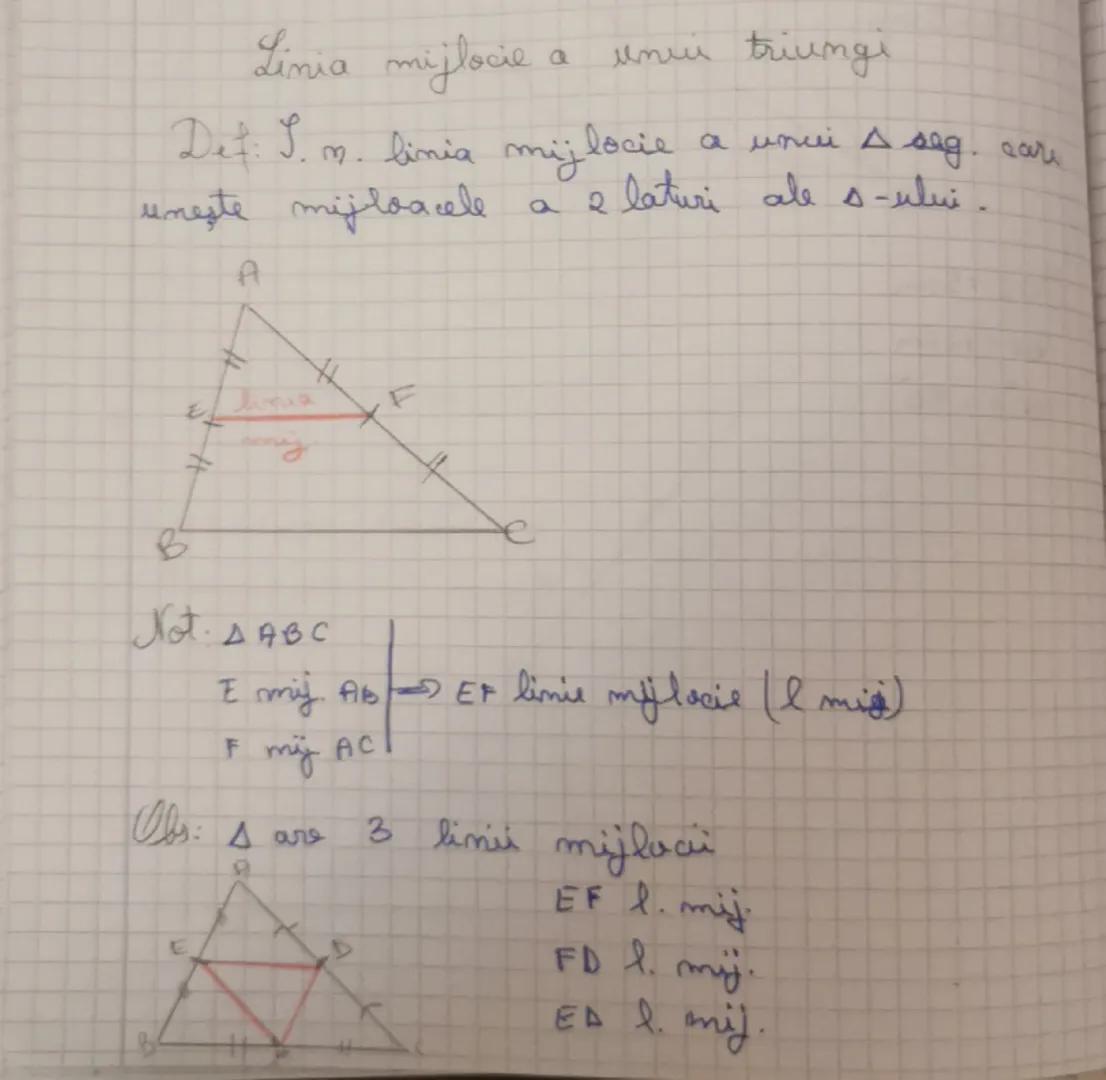 Linia mijlocie a unui triungi
Def: S. n. linia mijlocie a unui Δ seg. care
unește mijloacele a 2 laturi ale Δ-ului.
A
E
linia
F
mij
B
C
Not. Δ ABC
E mij. AB => EF linie mijlocie (l mij)
F mij AC
Obs: Δ are 3 linii mijlocii
A
EF l. mij.
E
D
FD l. mij.
ED l. mij.
B
F
C